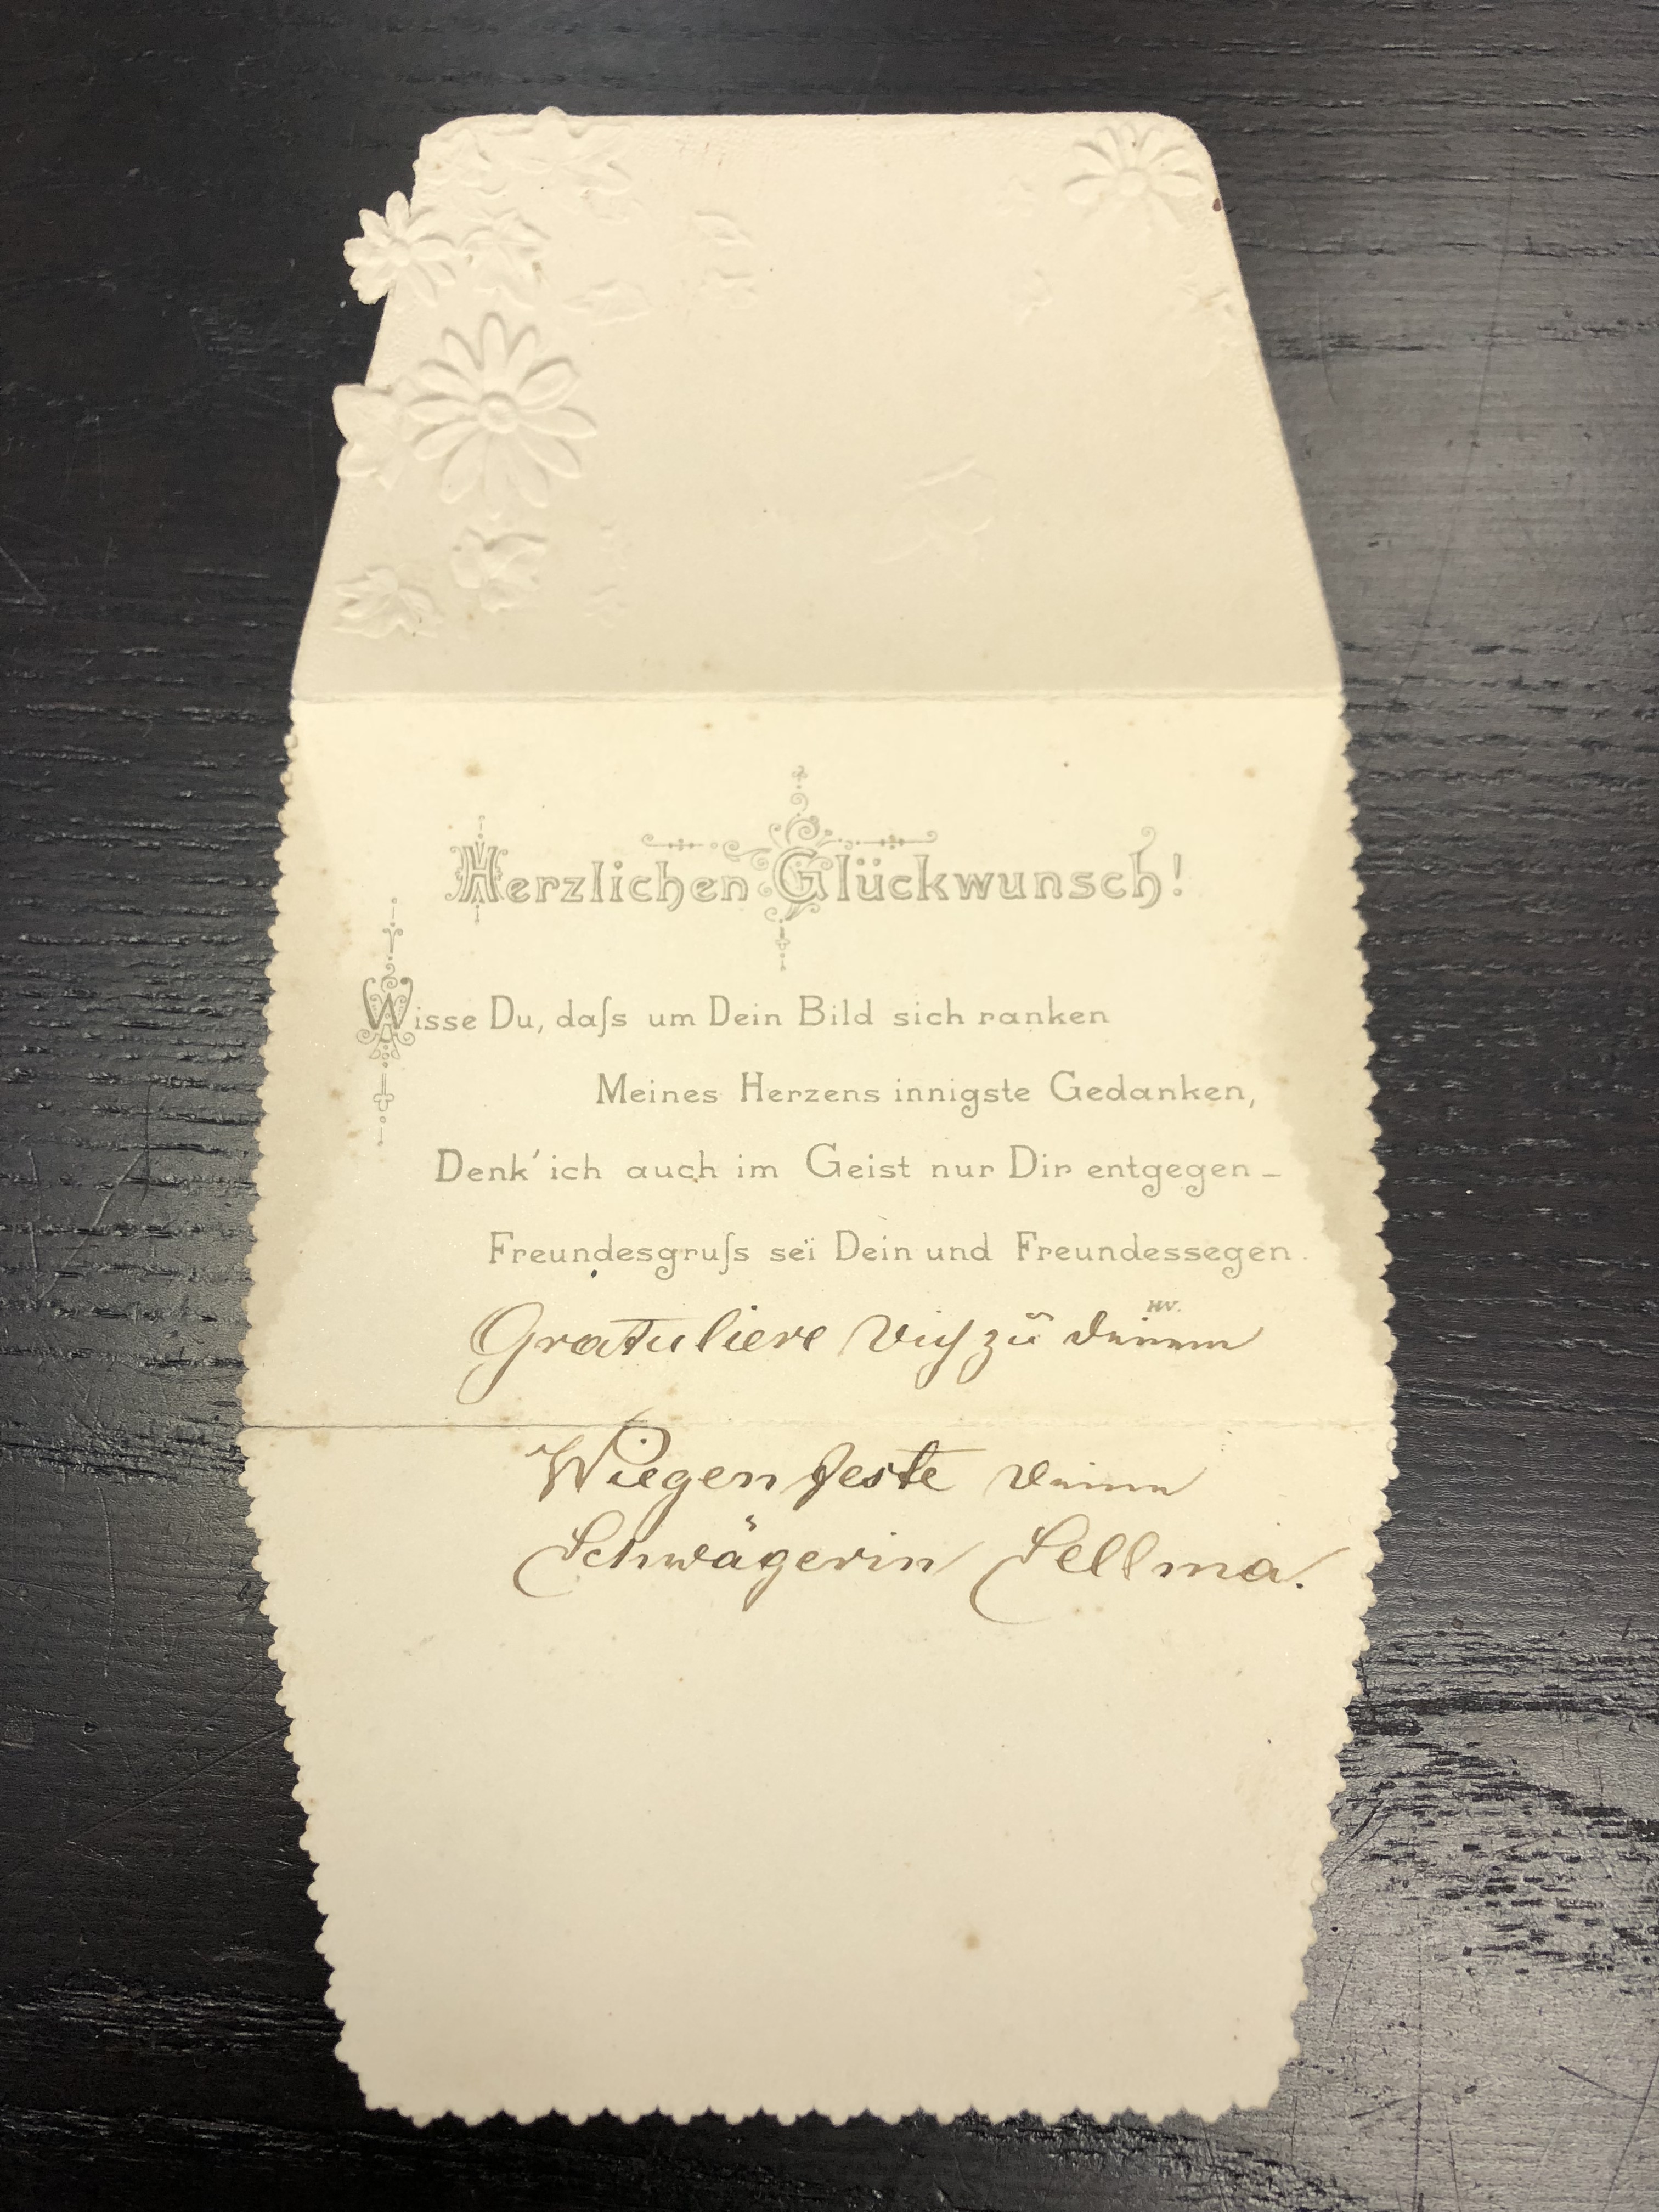 Herzlichen Glückwunsch!
Wisse Du, daſs um Dein Bild sich ranken
Meines Herzens innigste Gedanken,
Denk' ich auch im Geist nur Dir entgegen –
Freundesgruſs sei Dein und Freundessegen.
HW.
Gratuliere Dich zu deinem
Wiegenfeste Deine
Schwägerin Sellma.